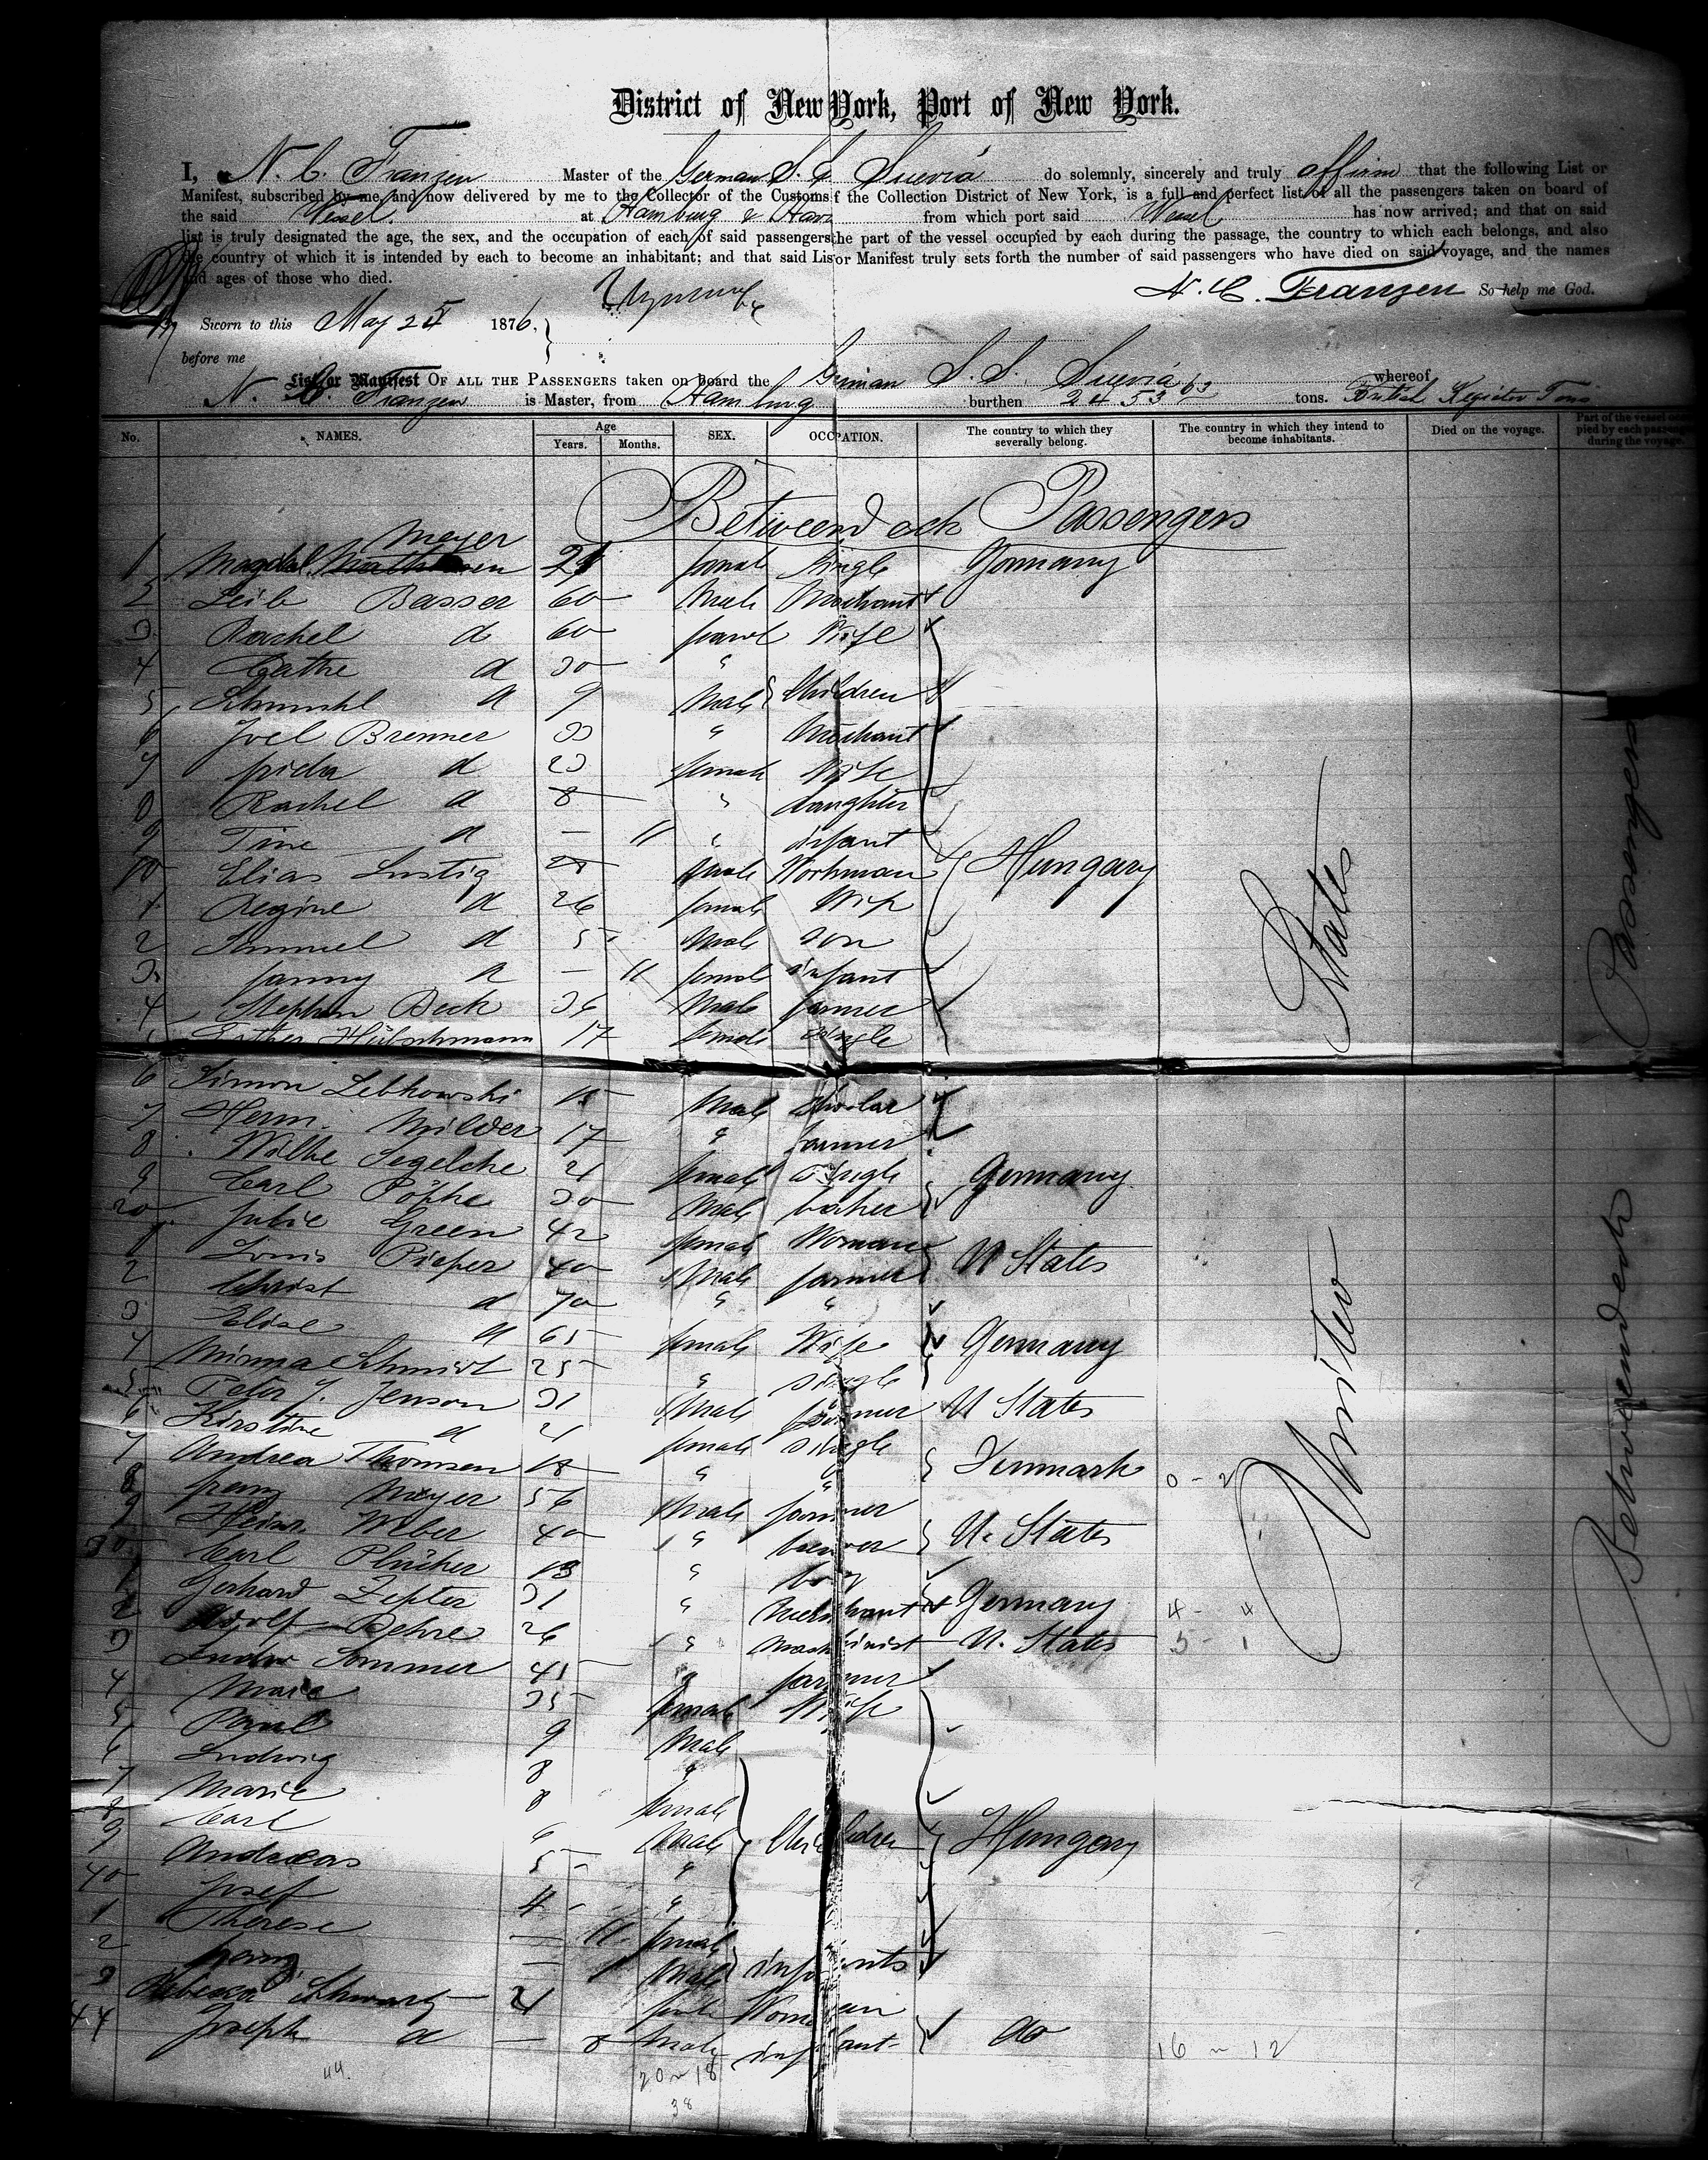 District of New York, Port of New York.
I, N. C. Franzen Master of the German S. S. Suevia do solemnly, sincerely and truly affirm that the following List or
Manifest, subscribed by me, and now delivered by me to the Collector of the Customs f the Collection District of New York, is a full and perfect list of all the passengers taken on board of
the said Vessel at Hamburg & Havre from which port said Vessel has now arrived; and that on said
list is truly designated the age, the sex, and the occupation of each of said passengers the part of the vessel occupied by each during the passage, the country to which each belongs, and also
the country of which it is intended by each to become an inhabitant; and that said Lis or Manifest truly sets forth the number of said passengers who have died on said voyage, and the names
and ages of those who died.
N. C. Franzen So help me God.
Sworn to this May 25 1876,
before me
List or Manifest OF ALL THE PASSENGERS taken on board the German S. S. Suevia whereof
N. C. Franzen is Master, from Hamburg burthen 2453 63 tons. British Register Tons
No. NAMES. Age Years. Months. SEX. OCCUPATION. The country to which they severally belong. The country in which they intend to become inhabitants. Died on the voyage. Part of the vessel occupied by each passenger during the voyage.
Betweendeck Passengers
1 Magdal. Meyer 21 female single Germany
2 Leib Basser 60 Male Merchant
3 Rachel d 60 femal Wife
4 d 30 "
5 d 9 Male Children
6 Joel Brenner 33 " Merchant
7 frida d 23 female Wife
8 Rachel d 8 " daughter
9 Tine d — 11 " infant
10 Elias Lustig 28 Male Workman Hungary
1 Regine d 26 female Wife
2 Samuel d 5 Male son
3 fanny d — 11 female infant
4 Stephan Beck 36 Male farmer
5 Esther Hübschmann 17 female single
6 Simon Lebkowski 15 Male scholar
7 Herm. Milder 17 " farmer
8 Wilhe Segelche 21 female single Germany
9 Carl Pöhke 30 Male baker
20 Julie Green 42 female Woman
1 Louis Pieper 40 Male farmer U States
2 Christ d 70 " "
3 Elise d 65 female Wife Germany
4 Minna Schmidt 25 " single
5 Peter J. Jenson 31 Male farmer U States
6 Kirstine d 21 female single
7 Andrea Thomsen 18 " " Denmark 0 - 2
8 franz Meyer 56 Male farmer
9 Heinr. Weber 40 " brewer U. States
30 Carl Plücker 13 " boy
1 Gerhard Zepter 31 " Merchant Germany 4 - 4
2 Adolf Behre 26 " machinist U. States 5 - 1
3 Ludw Sommer 41 " farmer
4 Marie 35 female Wife
5 Paul 9 Male
6 Ludwig 8 "
7 Marie 8 female
8 Carl 6 Male Children Hungary
9 Andreas 5 "
40 Josef 4 "
1 Therese — 11 female
2 franz — Male infants
3 Rebecca Schwartz 21 female Woman
44 Joseph d — 8 Male infant do
16 - 12
44.
20 - 18
38
United States
Betweendeck Passengers